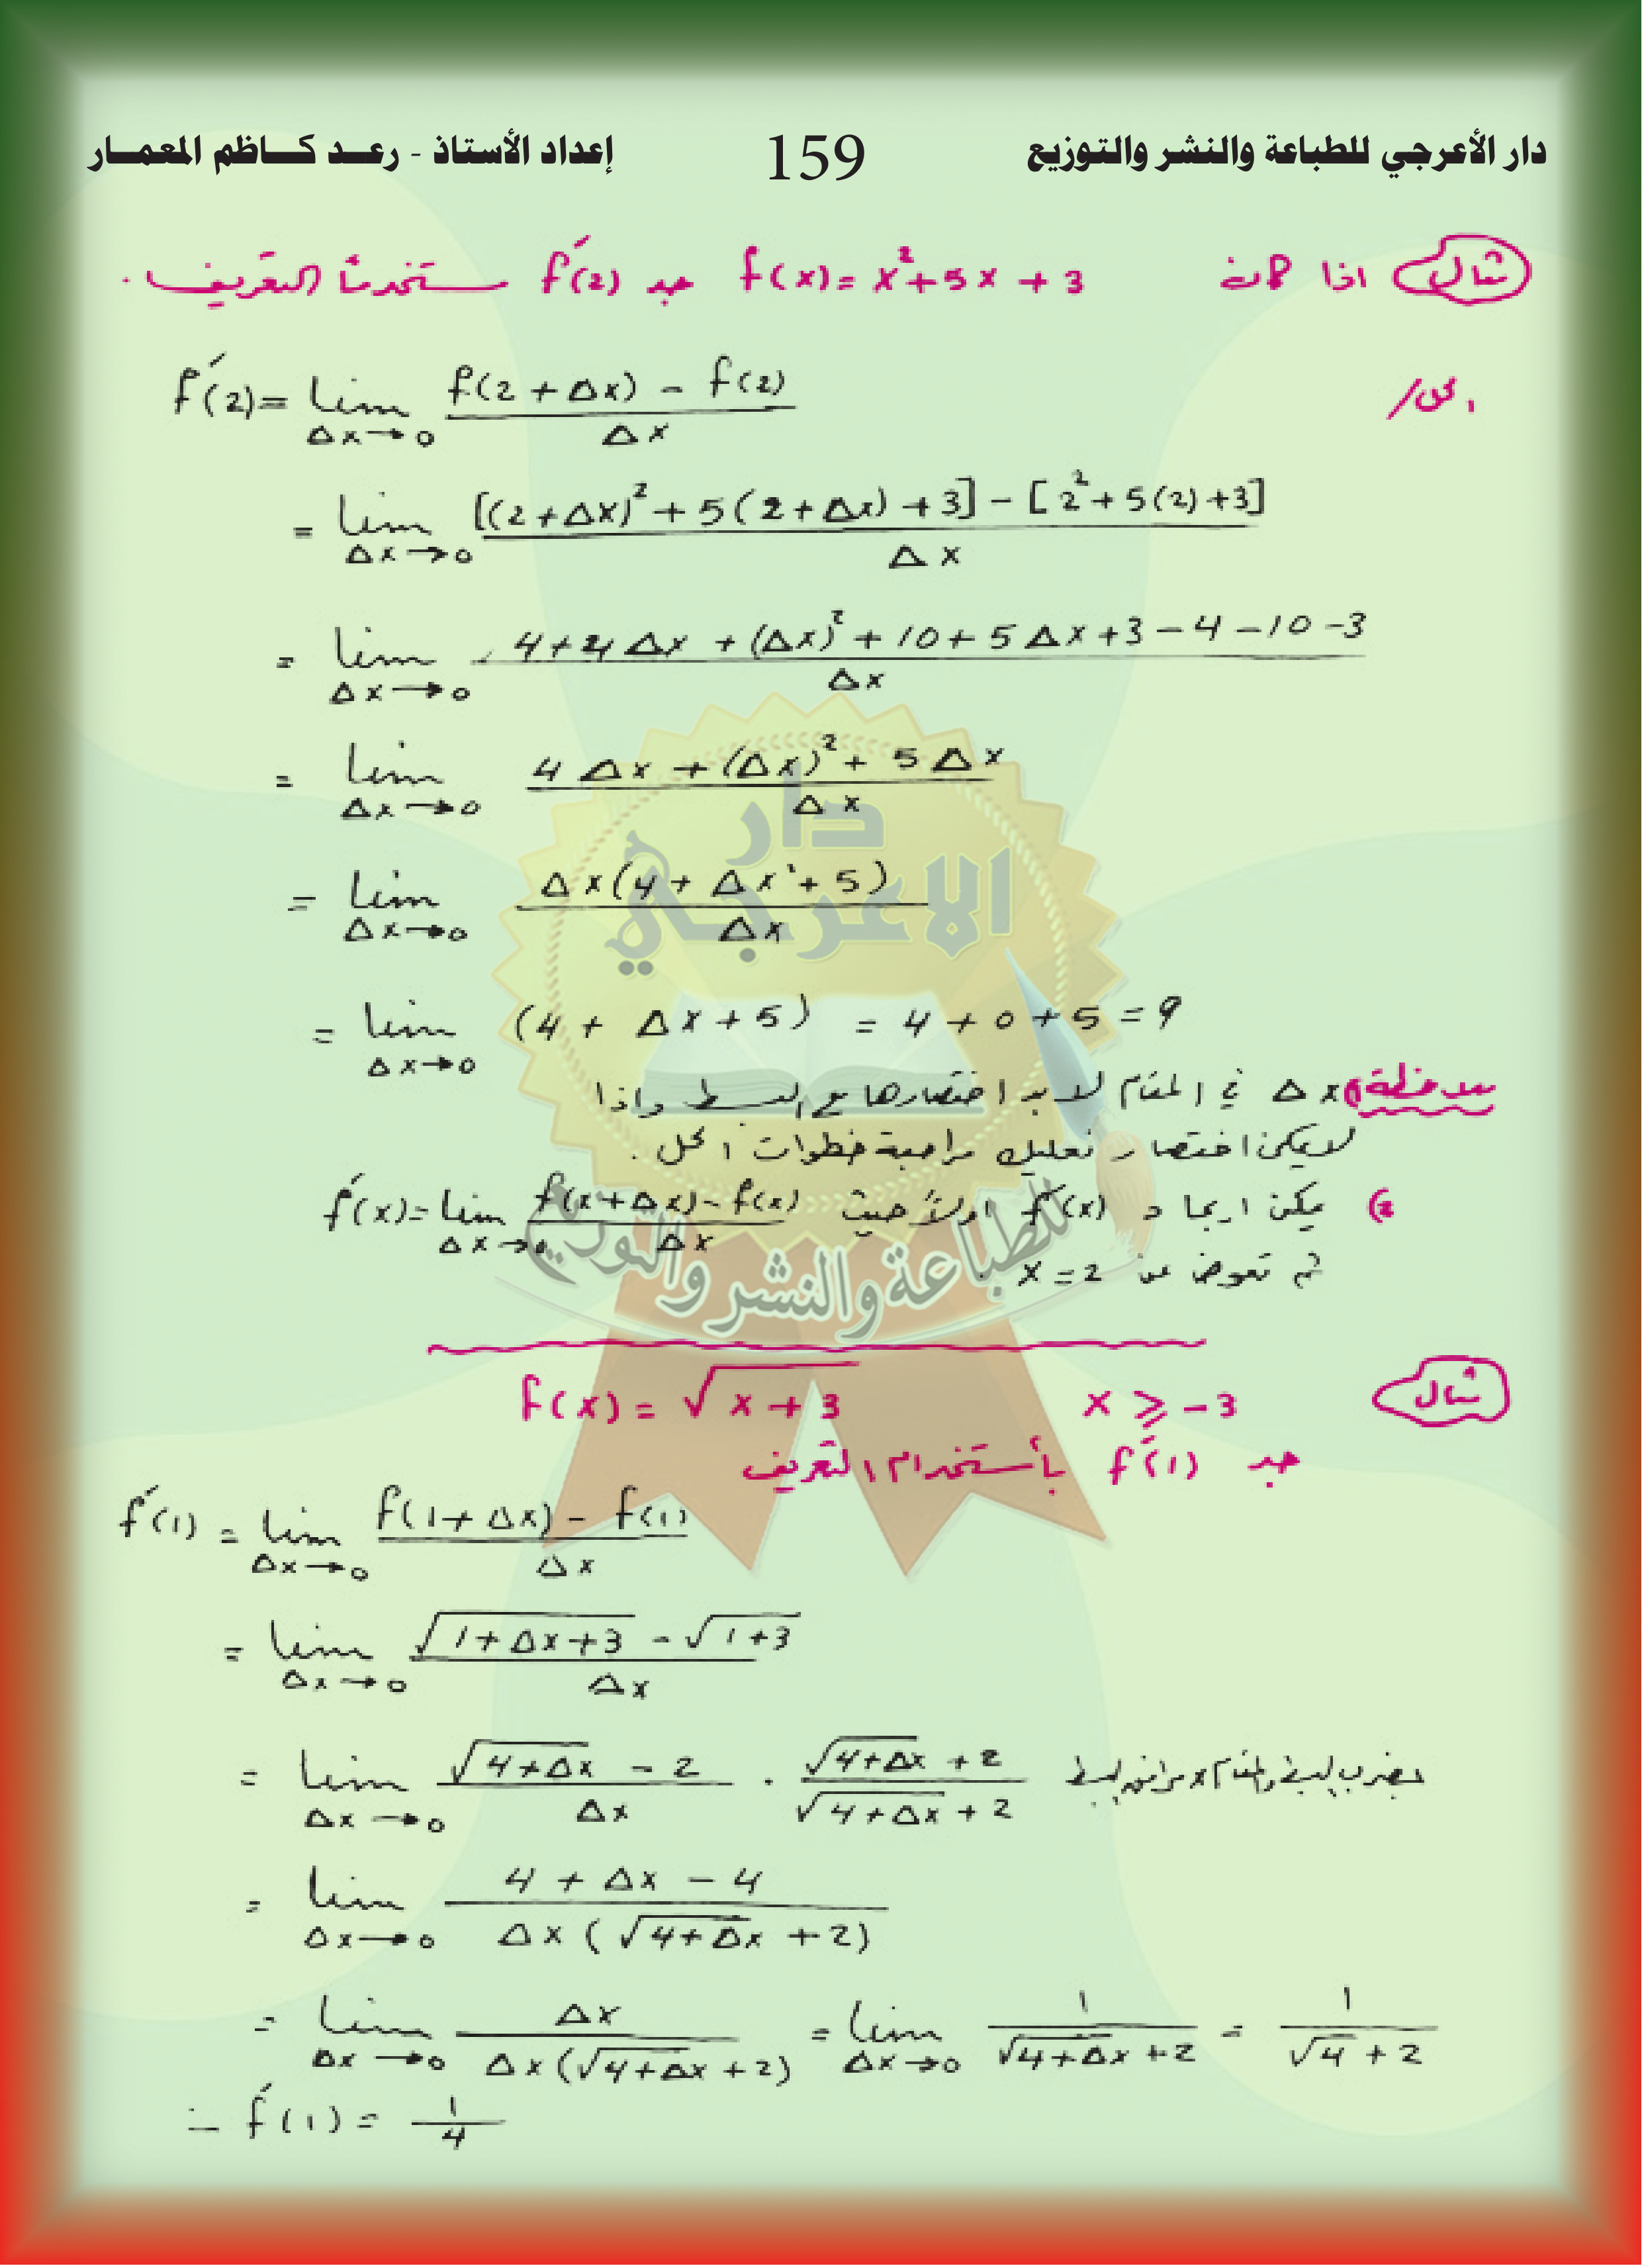 دار الأعرجي للطباعة والنشر والتوزيع 159 إعداد الأستاذ - رعـــد كـــاظم المعمـــار
مثال اذا كانت f(x) = x² + 5x + 3 جد f′(2) مستخدماً التعريف .
الحل /
f′(2) = lim Δx→0 (f(2 + Δx) - f(2)) / Δx
= lim Δx→0 ([(2+Δx)² + 5(2+Δx) + 3] - [2² + 5(2) + 3]) / Δx
= lim Δx→0 (4 + 4Δx + (Δx)² + 10 + 5Δx + 3 - 4 - 10 - 3) / Δx
= lim Δx→0 (4Δx + (Δx)² + 5Δx) / Δx
= lim Δx→0 Δx(4 + Δx + 5) / Δx
= lim Δx→0 (4 + Δx + 5) = 4 + 0 + 5 = 9
ملاحظة 1) Δx في المقام لابد اختصارها مع البسط واذا
لا يمكن اختصار فعليك مراجعة خطوات الحل .
2) يمكن ايجاد f′(x) اولاً حيث f′(x) = lim Δx→0 (f(x+Δx) - f(x)) / Δx
ثم تعوض عن x = 2
مثال f(x) = √(x + 3) x ⩾ -3
جد f′(1) بأستخدام التعريف
f′(1) = lim Δx→0 (f(1 + Δx) - f(1)) / Δx
= lim Δx→0 (√(1+Δx+3) - √(1+3)) / Δx
= lim Δx→0 (√(4+Δx) - 2) / Δx . (√(4+Δx) + 2) / (√(4+Δx) + 2) بضرب البسط والمقام × مرافق البسط
= lim Δx→0 (4 + Δx - 4) / (Δx(√(4+Δx) + 2))
= lim Δx→0 Δx / (Δx(√(4+Δx) + 2)) = lim Δx→0 1 / (√(4+Δx) + 2) = 1 / (√4 + 2)
∴ f′(1) = 1/4
دار
الاعرجي
للطباعة والنشر والتوزيع